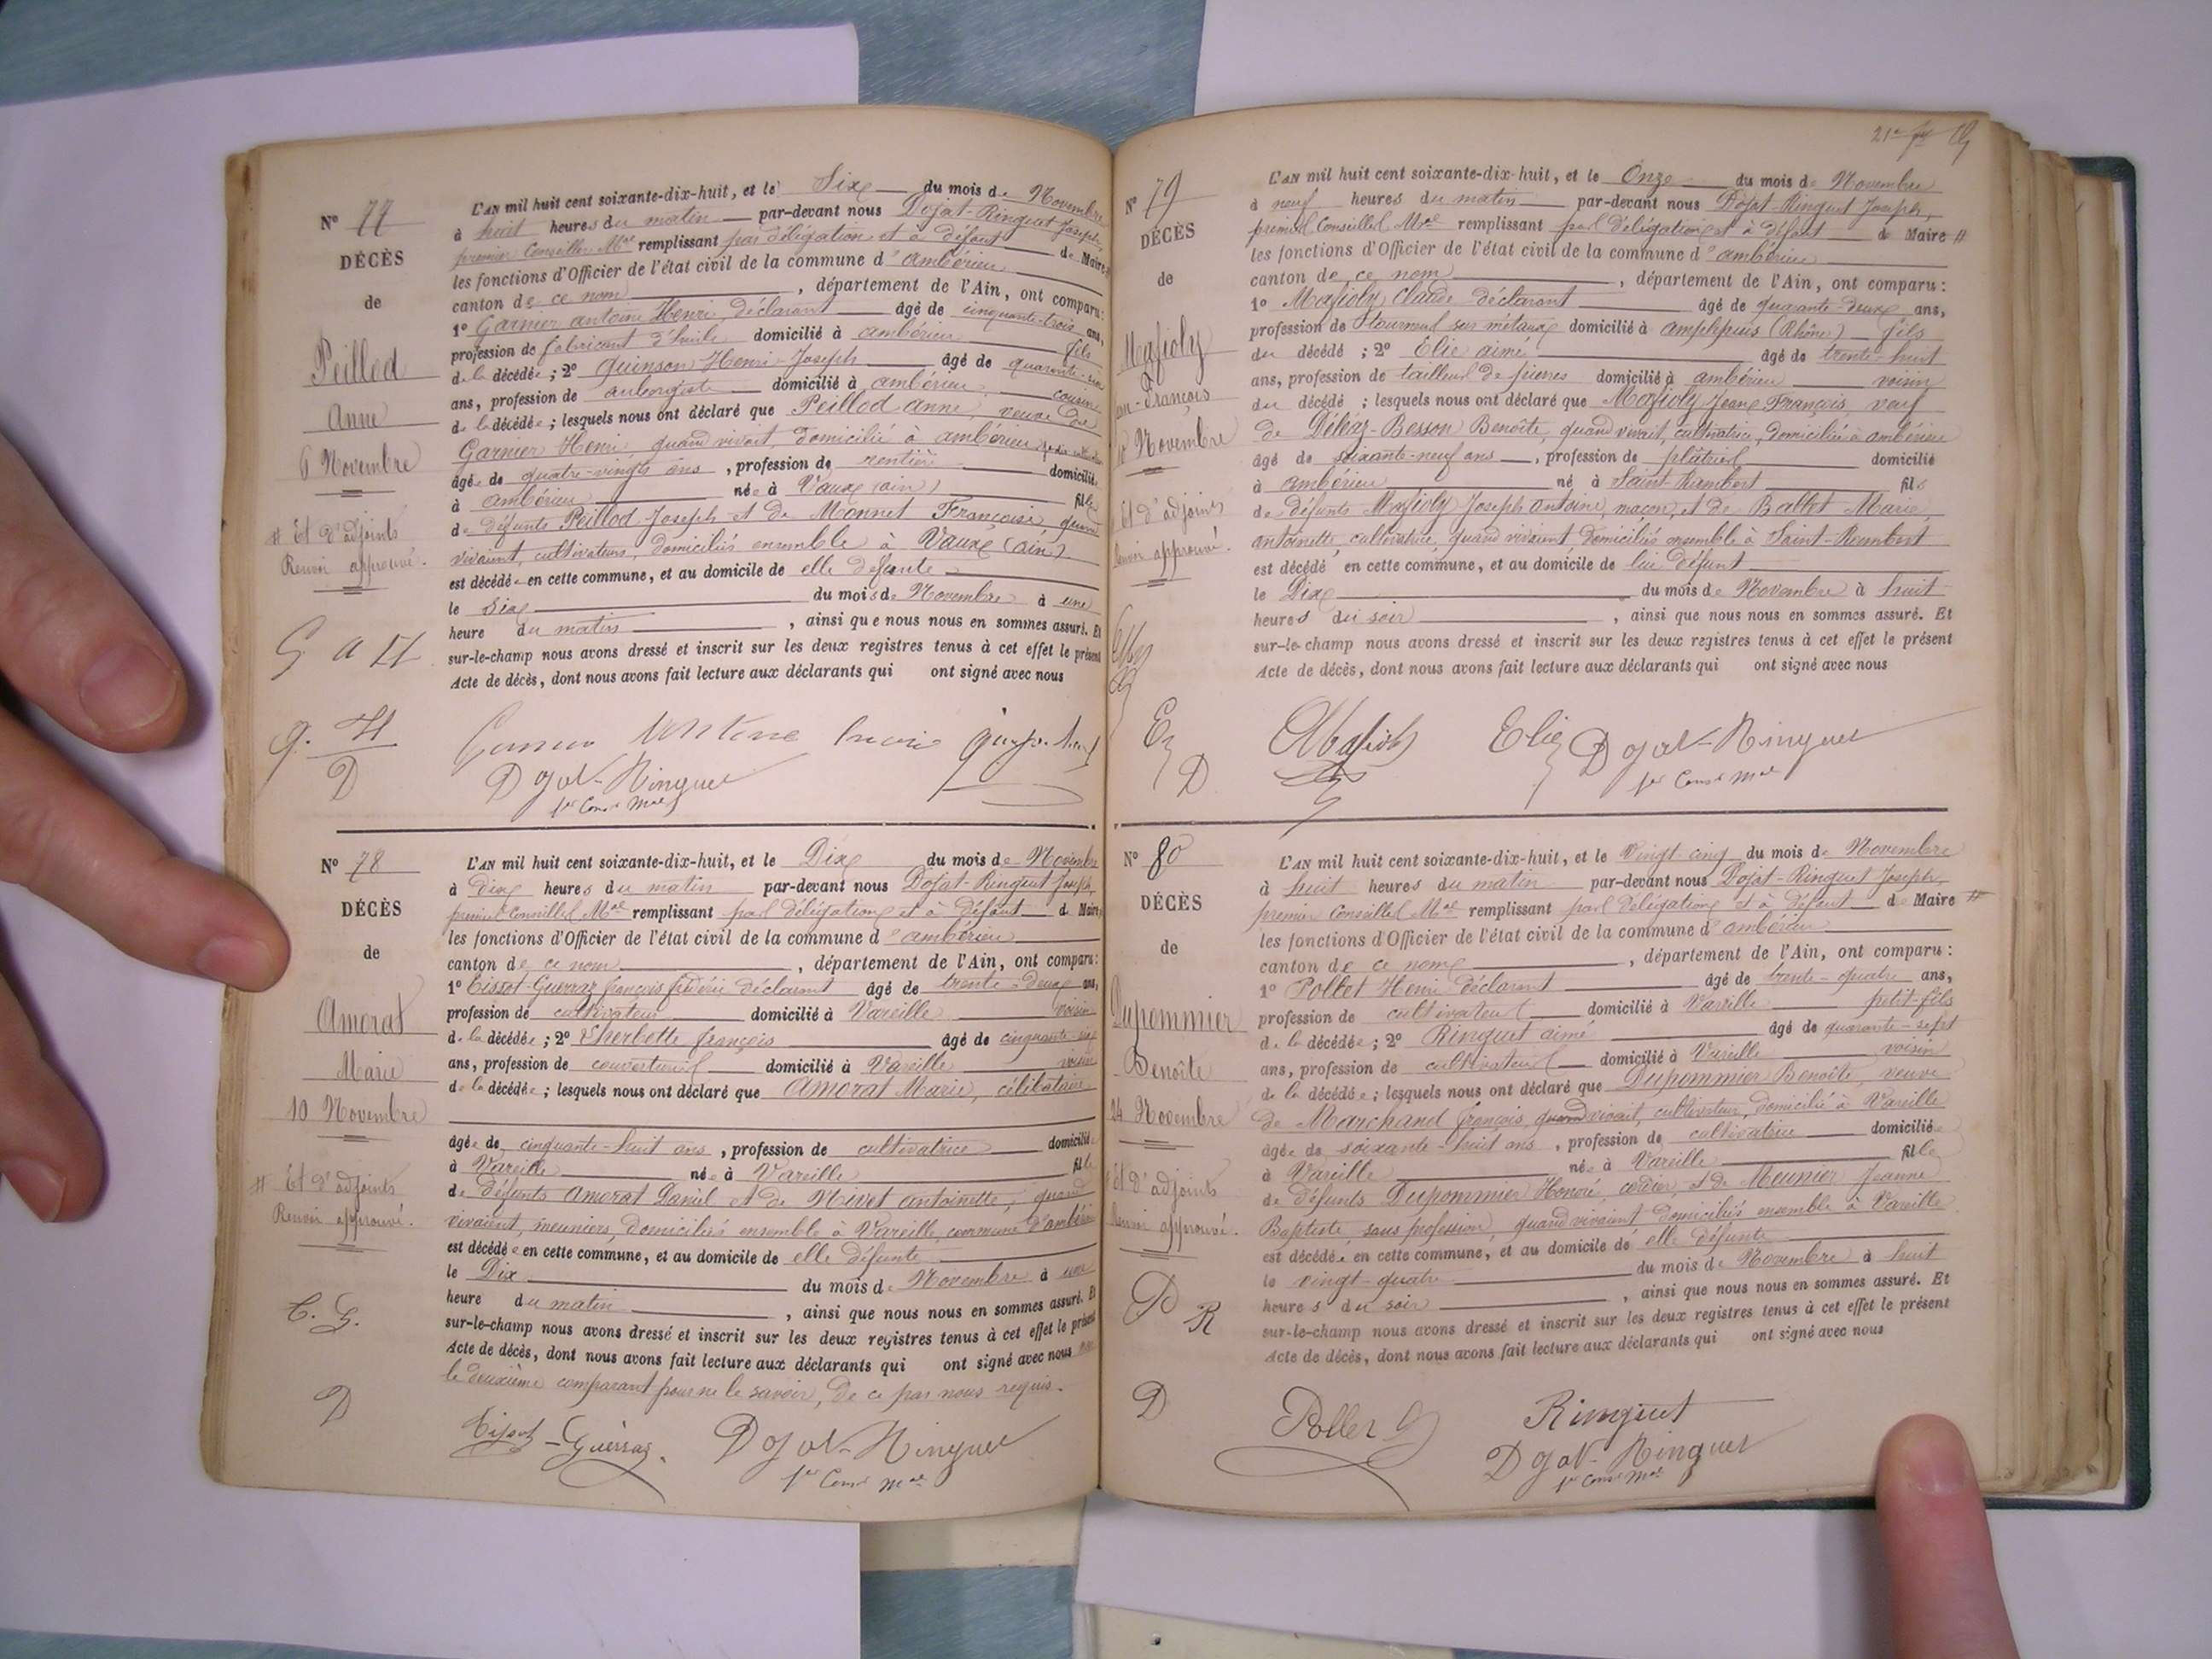 N° 77
DÉCÈS
de
Peillod
Anne
6 Novembre
# Et d'adjoints
Renvoi approuvé.
G A H
q. H
D
L'AN mil huit cent soixante-dix-huit, et le Six du mois de Novembre
à huit heures du matin par-devant nous Dojat-Ringuet Joseph,
premier Conseiller Mal remplissant par délégation et à défaut de Maire #
les fonctions d'Officier de l'état civil de la commune d'ambérieu
canton de ce nom, département de l'Ain, ont comparu:
1° Garnier antoine Henri, déclarant âgé de cinquante-trois ans,
profession de fabricant d'huile domicilié à ambérieu fils
de la décédée; 2° Quinson Henri-Joseph âgé de quarante-six
ans, profession de aubergiste domicilié à ambérieu cousin
de la décédée; lesquels nous ont déclaré que Peillod anne, veuve de
Garnier Henri quand vivait, domicilié à ambérieu
âgée de quatre-vingts ans, profession de rentière domiciliée
à ambérieu née à Vaux (ain) fille
de défunts Peillod Joseph et de Monnet Françoise, quand
vivaient, cultivateurs, domiciliés ensemble à Vaux (ain)
est décédée en cette commune, et au domicile de elle défunte
le Six du mois de Novembre à une
heure du matin, ainsi que nous nous en sommes assuré. Et
sur-le-champ nous avons dressé et inscrit sur les deux registres tenus à cet effet le présent
Acte de décès, dont nous avons fait lecture aux déclarants qui ont signé avec nous
Dojat-Ringuet
1er Cons Mal
N° 78
DÉCÈS
de
Amorat
Marie
10 Novembre
# Et d'adjoints
Renvoi approuvé.
C. G.
D
L'AN mil huit cent soixante-dix-huit, et le Dix du mois de Novembre
à dix heures du matin par-devant nous Dojat-Ringuet Joseph,
premier Conseiller Mal remplissant par délégation et à défaut de Maire #
les fonctions d'Officier de l'état civil de la commune d'ambérieu
canton de ce nom, département de l'Ain, ont comparu:
1° Tissot-Guerraz françois frédéric déclarant âgé de trente-deux ans,
profession de cultivateur domicilié à Vareille voisin
de la décédée; 2° Lherbette françois âgé de cinquante-six
ans, profession de couverturier domicilié à Vareille voisin
de la décédée; lesquels nous ont déclaré que Amorat Marie, célibataire
âgée de cinquante-huit ans, profession de cultivatrice domiciliée
à Vareille née à Vareille fille
de défunts Amorat Daniel et de Nivet antoinette, quand
vivaient, meuniers, domiciliés ensemble à Vareille, commune d'ambérieu
est décédée en cette commune, et au domicile de elle défunte
le Dix du mois de Novembre à une
heure du matin, ainsi que nous nous en sommes assuré. Et
sur-le-champ nous avons dressé et inscrit sur les deux registres tenus à cet effet le présent
Acte de décès, dont nous avons fait lecture aux déclarants qui ont signé avec nous non
le deuxième comparant pour ne le savoir, de ce par nous requis.
Tissot-Guerraz.
Dojat-Ringuet
1er Cons Mal
N° 79
DÉCÈS
de
Mafioly
François
10 Novembre
Et d'adjoints
Renvoi approuvé.
E
D
L'AN mil huit cent soixante-dix-huit, et le Onze du mois de Novembre
à neuf heures du matin par-devant nous Dojat-Ringuet Joseph,
premier Conseiller Mal remplissant par délégation et à défaut de Maire #
les fonctions d'Officier de l'état civil de la commune d'ambérieu
canton de ce nom, département de l'Ain, ont comparu:
1° Mafioly Claude déclarant âgé de quarante-deux ans,
profession de Tourneur sur métaux domicilié à amplepuis (Rhône) fils
du décédé; 2° Elie aimé âgé de trente-huit
ans, profession de tailleur de pierres domicilié à ambérieu voisin
du décédé; lesquels nous ont déclaré que Mafioly Jean François, veuf
de Déléaz-Besson Benoîte, quand vivait, cultivatrice, domiciliée à ambérieu
âgé de soixante-neuf ans, profession de plâtrier domicilié
à ambérieu né à Saint-Rambert fils
de défunts Mafioly Joseph antoine, maçon, et de Ballet Marie
antoinette, cultivatrice, quand vivaient domiciliés ensemble à Saint-Rambert
est décédé en cette commune, et au domicile de lui défunt
le Dix du mois de Novembre à huit
heures du soir, ainsi que nous nous en sommes assuré. Et
sur-le-champ nous avons dressé et inscrit sur les deux registres tenus à cet effet le présent
Acte de décès, dont nous avons fait lecture aux déclarants qui ont signé avec nous
Elie
Dojat-Ringuet
1er Cons Mal
N° 80
DÉCÈS
de
Dupommier
Benoîte
24 Novembre
Et d'adjoints
Renvoi approuvé.
P R
D
L'AN mil huit cent soixante-dix-huit, et le Vingt-cinq du mois de Novembre
à huit heures du matin par-devant nous Dojat-Ringuet Joseph,
premier Conseiller Mal remplissant par délégation et à défaut de Maire #
les fonctions d'Officier de l'état civil de la commune d'ambérieu
canton de ce nom, département de l'Ain, ont comparu:
1° Pollet Henri déclarant âgé de trente-quatre ans,
profession de cultivateur domicilié à Vareille petit-fils
de la décédée; 2° Ringuet aimé âgé de quarante-sept
ans, profession de cultivateur domicilié à Vareille voisin
de la décédée; lesquels nous ont déclaré que Dupommier Benoîte, veuve
de Marchand françois, quand vivait, cultivateur, domicilié à Vareille
âgée de soixante-huit ans, profession de cultivatrice domiciliée
à Vareille née à Vareille fille
de défunts Dupommier Honoré, cordier, et de Meunier Jeanne
Baptiste, sans profession, quand vivaient domiciliés ensemble à Vareille
est décédée en cette commune, et au domicile de elle défunte
le vingt-quatre du mois de Novembre à huit
heures du soir, ainsi que nous nous en sommes assuré. Et
sur-le-champ nous avons dressé et inscrit sur les deux registres tenus à cet effet le présent
Acte de décès, dont nous avons fait lecture aux déclarants qui ont signé avec nous
Pollet
Ringuet
Dojat-Ringuet
1er Cons Mal